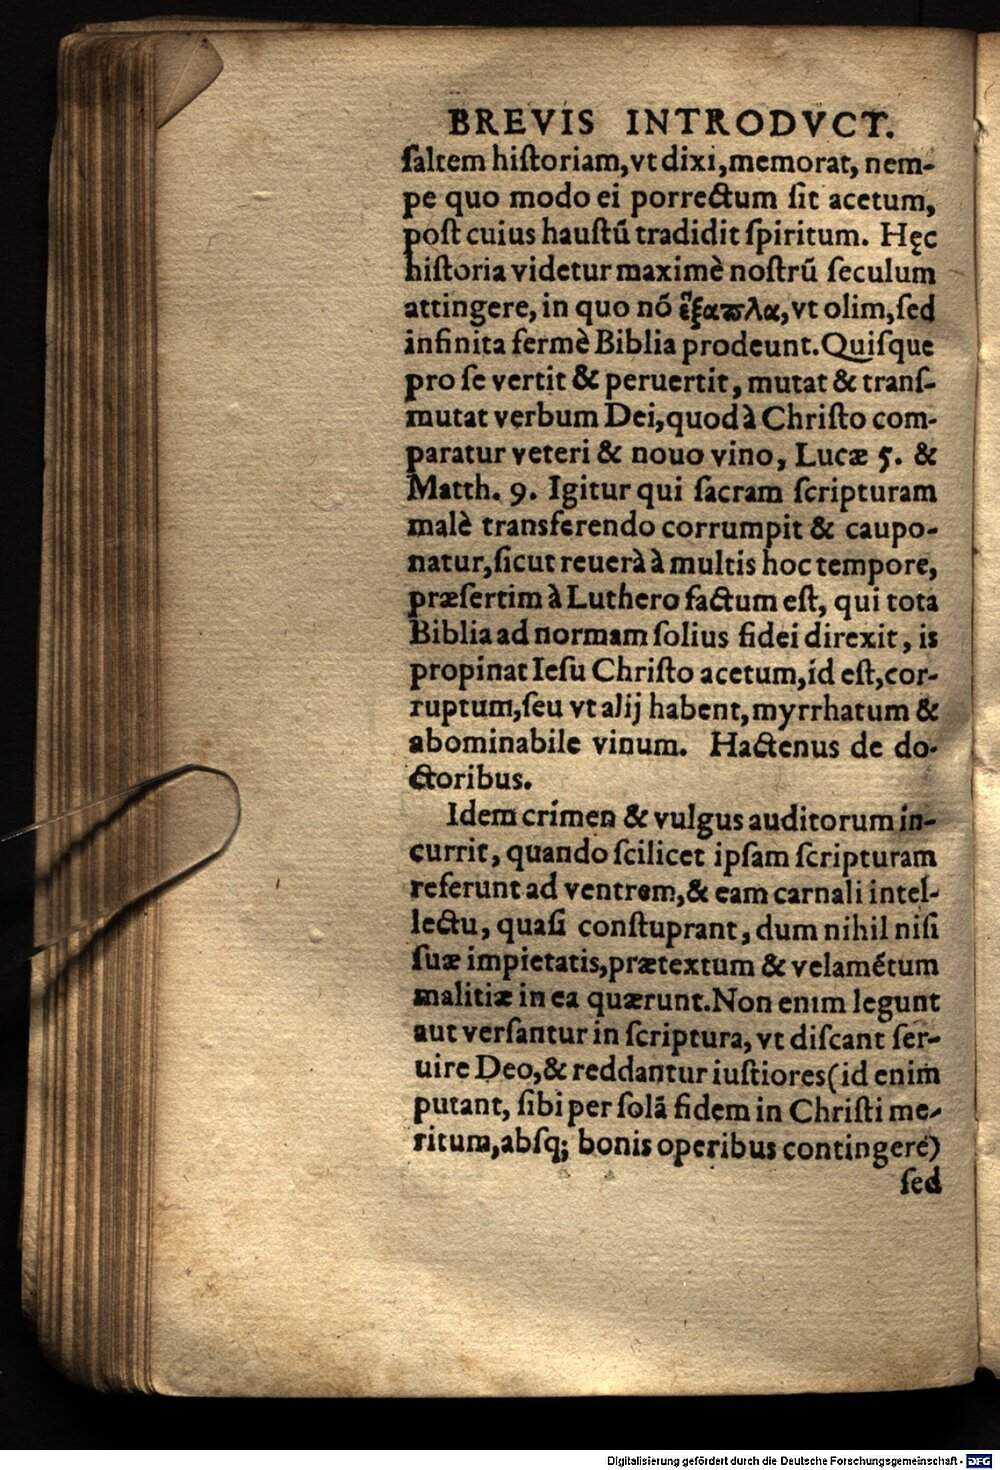 BREVIS INTRODVCT.
ſaltem hiſtoriam,vt dixi,memorat, nem-
pe quo modo ei porrectum ſit acetum,
poſt cuius hauſtū tradidit ſpiritum. Hęc
hiſtoria videtur maximè noſtrū ſeculum
attingere, in quo nō ἕξαπλα,vt olim,ſed
infinita fermè Biblia prodeunt.Quiſque
pro ſe vertit & peruertit, mutat & tranſ-
mutat verbum Dei,quod à Chriſto com-
paratur veteri & nouo vino, Lucæ 5. &
Matth. 9. Igitur qui ſacram ſcripturam
malè transferendo corrumpit & caupo-
natur,ſicut reuerà à multis hoc tempore,
præſertim à Luthero factum eſt, qui tota
Biblia ad normam ſolius fidei direxit, is
propinat Ieſu Chriſto acetum,id eſt,cor-
ruptum,ſeu vt alij habent,myrrhatum &
abominabile vinum. Hactenus de do-
ctoribus.
Idem crimen & vulgus auditorum in-
currit, quando ſcilicet ipſam ſcripturam
referunt ad ventrem,& eam carnali intel-
lectu, quaſi conſtuprant, dum nihil niſi
ſuæ impietatis,prætextum & velamētum
malitiæ in ea quærunt.Non enim legunt
aut verſantur in ſcriptura, vt diſcant ſer-
uire Deo,& reddantur iuſtiores(id enim
putant, ſibi per ſolā fidem in Chriſti me-
ritum,abſq; bonis operibus contingere)
ſed
Digitalisierung gefördert durch die Deutsche Forschungsgemeinschaft - DFG